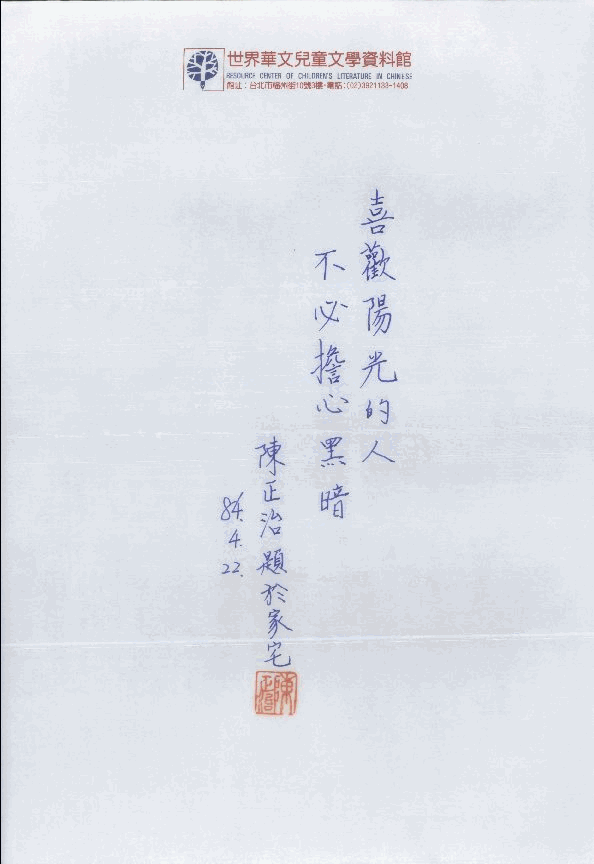 世界華文兒童文學資料館
RESOURCE CENTER OF CHILDREN'S LITERATURE IN CHINESE
館址：台北市福州街10號3樓·電話：(02)3921133-1408
喜歡陽光的人
不必擔心黑暗
陳正治題於家宅
84.4.22.
陳正治